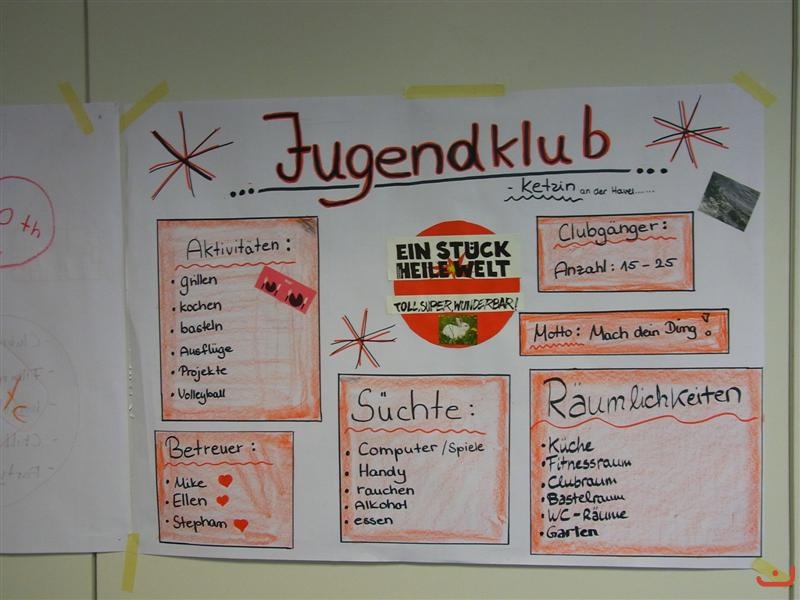 Jugendklub
- Ketzin an der Havel......
Aktivitäten:
• grillen
• kochen
• basteln
• Ausflüge
• Projekte
• Volleyball
EIN STÜCK
HEILE WELT
TOLL, SUPER, WUNDERBAR!
Clubgänger:
Anzahl: 15-25
Motto: Mach dein Ding!
Betreuer:
• Mike
• Ellen
• Stephan
Süchte:
• Computer/Spiele
• Handy
• rauchen
• Alkohol
• essen
Räumlichkeiten
• Küche
• Fitnessraum
• Clubraum
• Bastelraum
• WC-Räume
• Garten